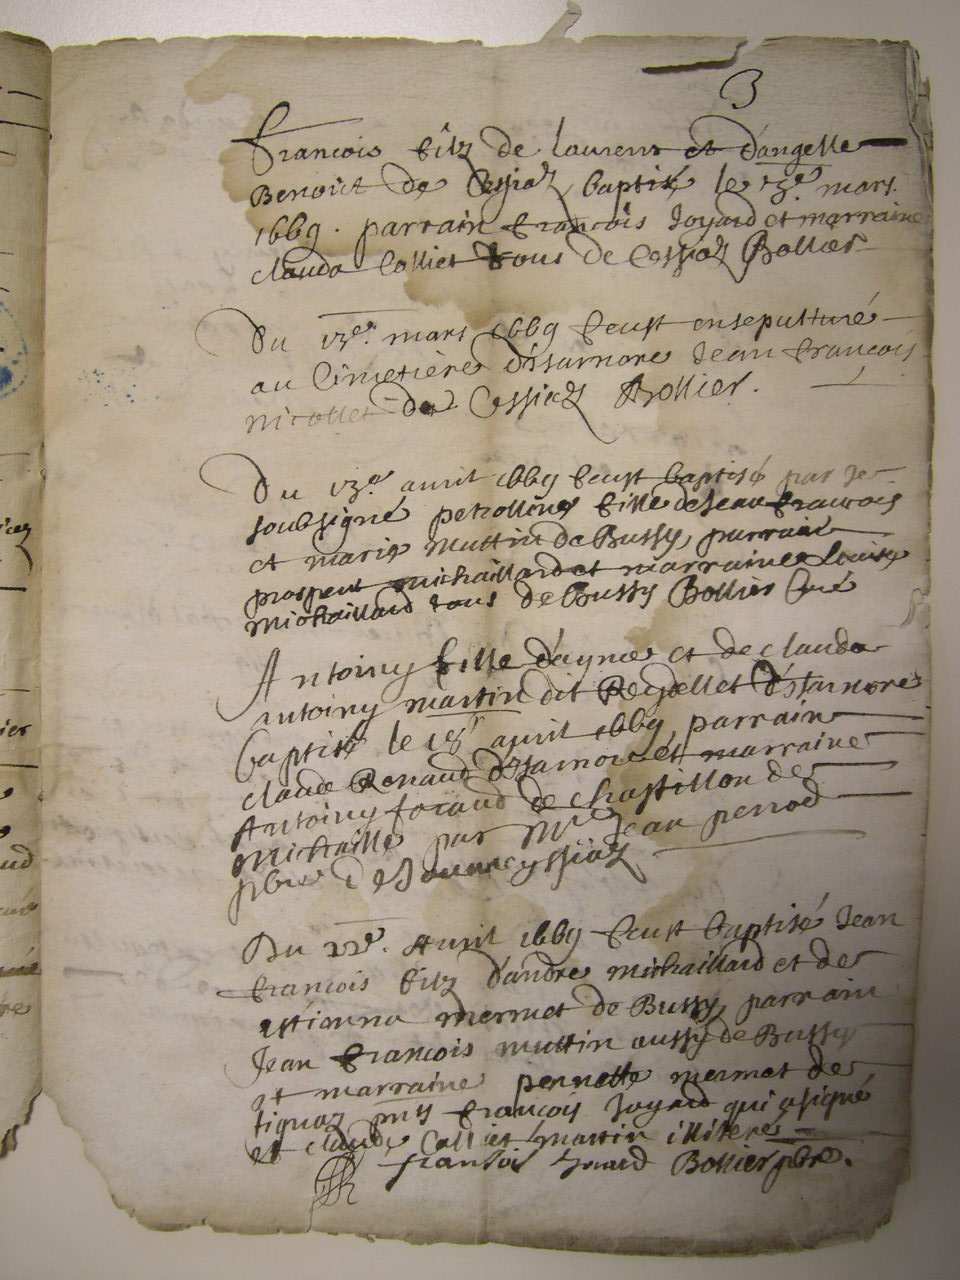 3
francois filz de laurent et d'angelle
Benoict de Cessiaz baptisé le 13e. mars
1669. parrain francois Joyard et marraine
clauda Colliet tous de Cessiaz Bollier
Du 13e. mars 1669 feust ensepulturé
au Cimetière d'Isarnore Jean francois
nicollet de Cessiaz Bollier.
Du 13e avril 1669 feust baptisé par Je
soubsigné petrolline fille de Jean francois
et marie muttin de Bussy, parrain
prospert michaillard et marraine Louise
michaillard tous de Bussy Bollier Curé
Antoiny fille d'ayme et de clauda
antoiny martin dit Reydellet d'Isarnore
baptisé le avril 1669 parrain
claude Renaud d'Isarnore et marraine
Antoiny de chastillon de
michaille par Mre Jean perrod
pbre
Du 22e. Avril 1669 feust baptisé Jean
francois filz d'andre michaillard et de
estienna mermet de Bussy, parrain
Jean francois muttin aussy de Bussy
et marraine pernette mermet de
tignaz pnts francois Joyard qui a signé
et claude Colliet martin illitere
francois Joyard Bollier pbre.